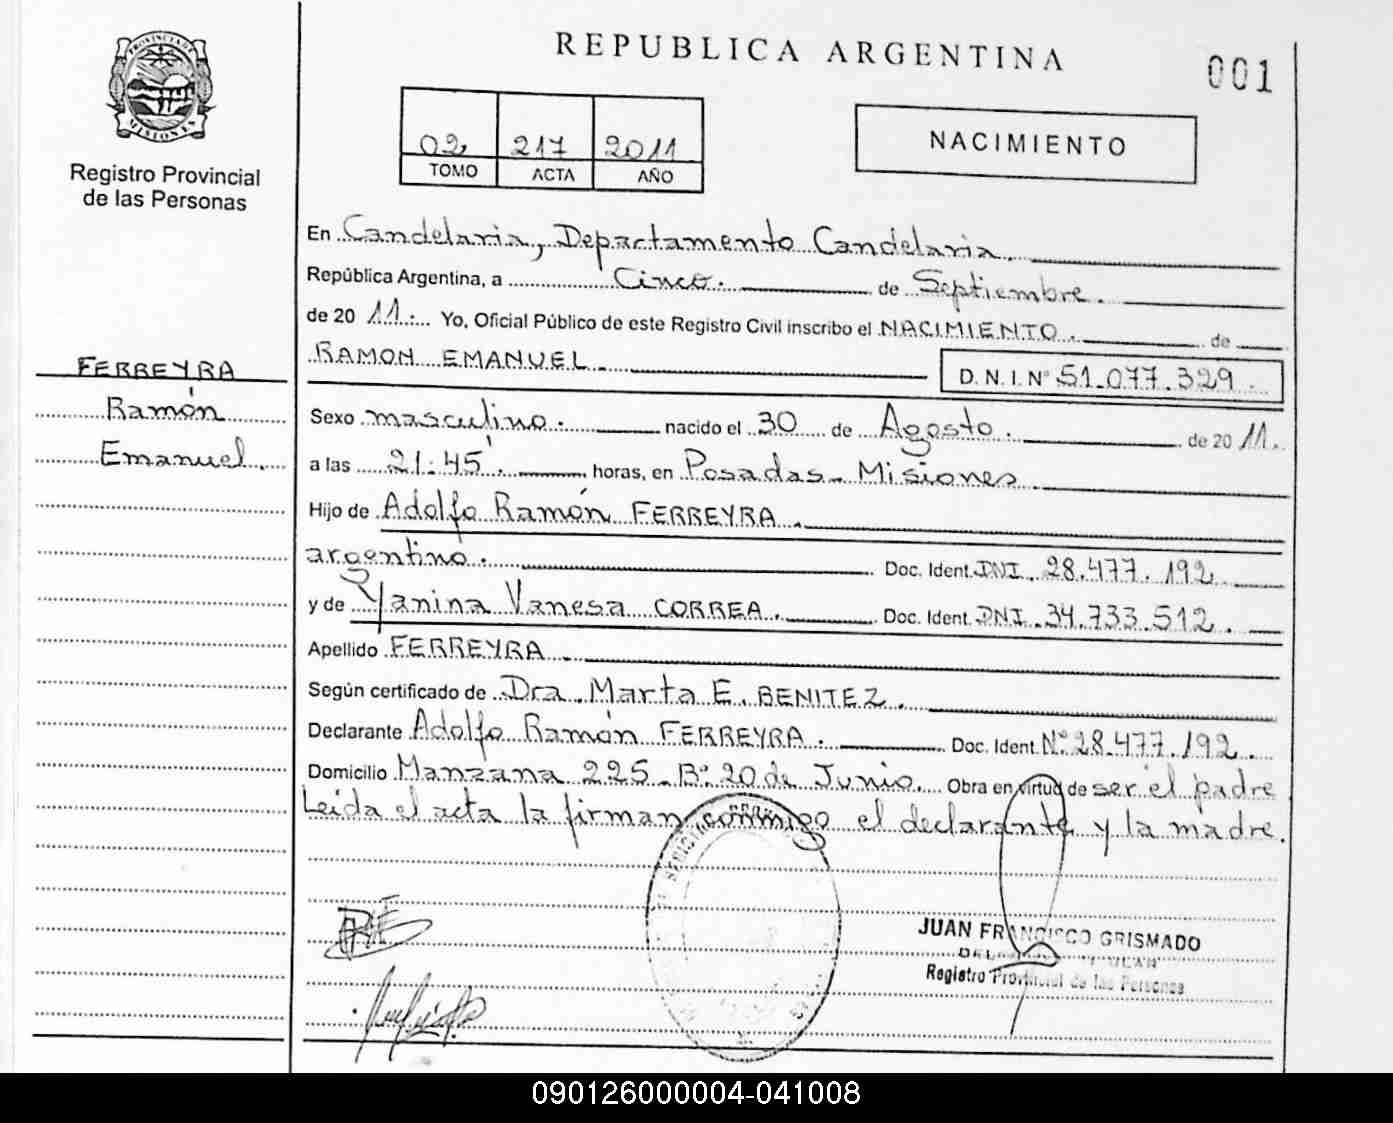 PROVINCIA DE
MISIONES
Registro Provincial
de las Personas
FERREYRA
Ramón
Emanuel.
REPUBLICA ARGENTINA
001
02 217 2011
TOMO ACTA AÑO
NACIMIENTO
En Candelaria, Departamento Candelaria.
República Argentina, a Cinco. de Septiembre.
de 2011. Yo, Oficial Público de este Registro Civil inscribo el NACIMIENTO. de
RAMON EMANUEL. D.N.I.Nº 51.077.329.
Sexo masculino. nacido el 30 de Agosto. de 2011.
a las 21:45. horas, en Posadas. Misiones.
Hijo de Adolfo Ramón FERREYRA.
argentino. Doc. Ident. DNI. 28.477.192
y de Yanina Vanesa CORREA. Doc. Ident. DNI. 34.733.512.
Apellido FERREYRA.
Según certificado de Dra. Marta E. BENITEZ.
Declarante Adolfo Ramón FERREYRA. Doc. Ident. Nº 28.477.192.
Domicilio Manzana 225. Bº 20 de Junio. Obra en virtud de ser el padre
Leida el acta la firman conmigo el declarante y la madre.
JUAN FRANCISCO GRISMADO
Registro Provincial de las Personas
090126000004-041008